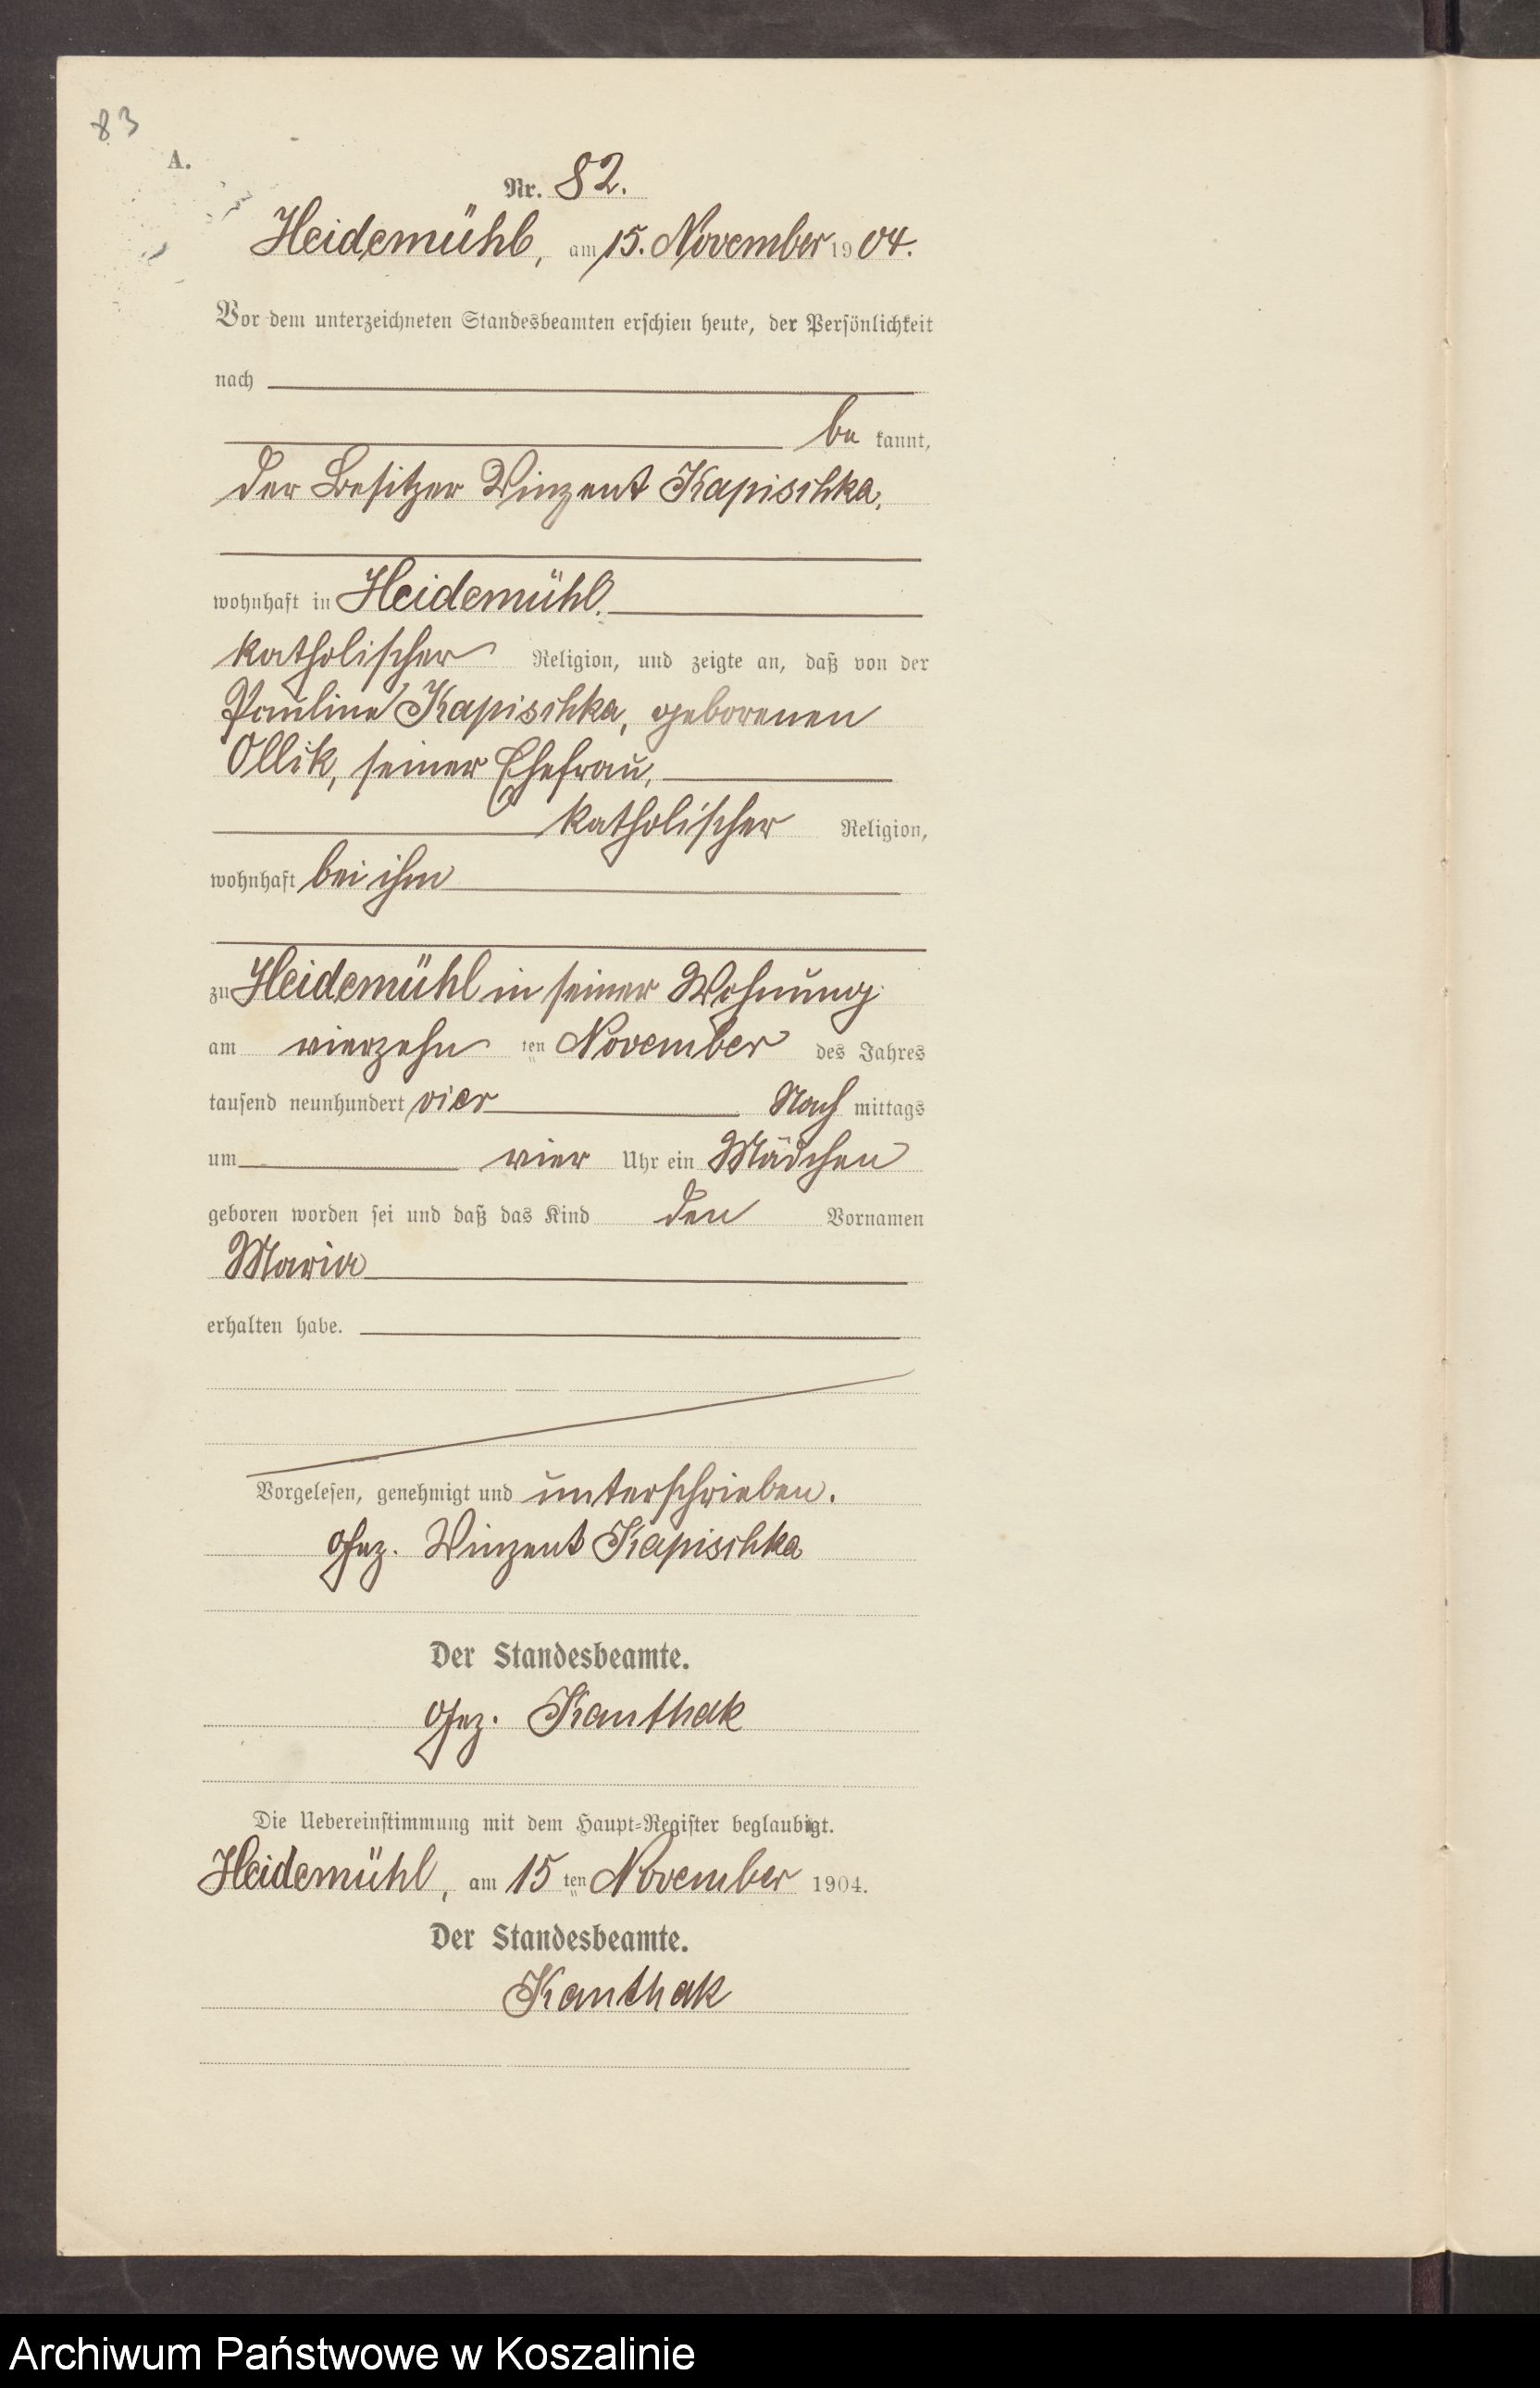 83
A.
Nr. 82.
Heidemühl, am 15. November 1904.
Vor dem unterzeichneten Standesbeamten erschien heute, der Persönlichkeit
nach
be kannt,
der Besitzer Vinzent Kapischka,
wohnhaft in Heidemühl.
katholischer Religion, und zeigte an, daß von der
Pauline Kapischka, geborenen
Ollik, seiner Ehefrau,
katholischer Religion,
wohnhaft bei ihm
zu Heidemühl in seiner Wohnung
am vierzehn ten November des Jahres
tausend neunhundert vier Nach mittags
um vier Uhr ein Mädchen
geboren worden sei und daß das Kind den Vornamen
Maria
erhalten habe.
Vorgelesen, genehmigt und unterschrieben.
Gez. Vinzent Kapischka
Der Standesbeamte.
Gez. Kanthak
Die Uebereinstimmung mit dem Haupt-Register beglaubigt.
Heidemühl, am 15 ten November 1904.
Der Standesbeamte.
Kanthak
Archiwum Państwowe w Koszalinie